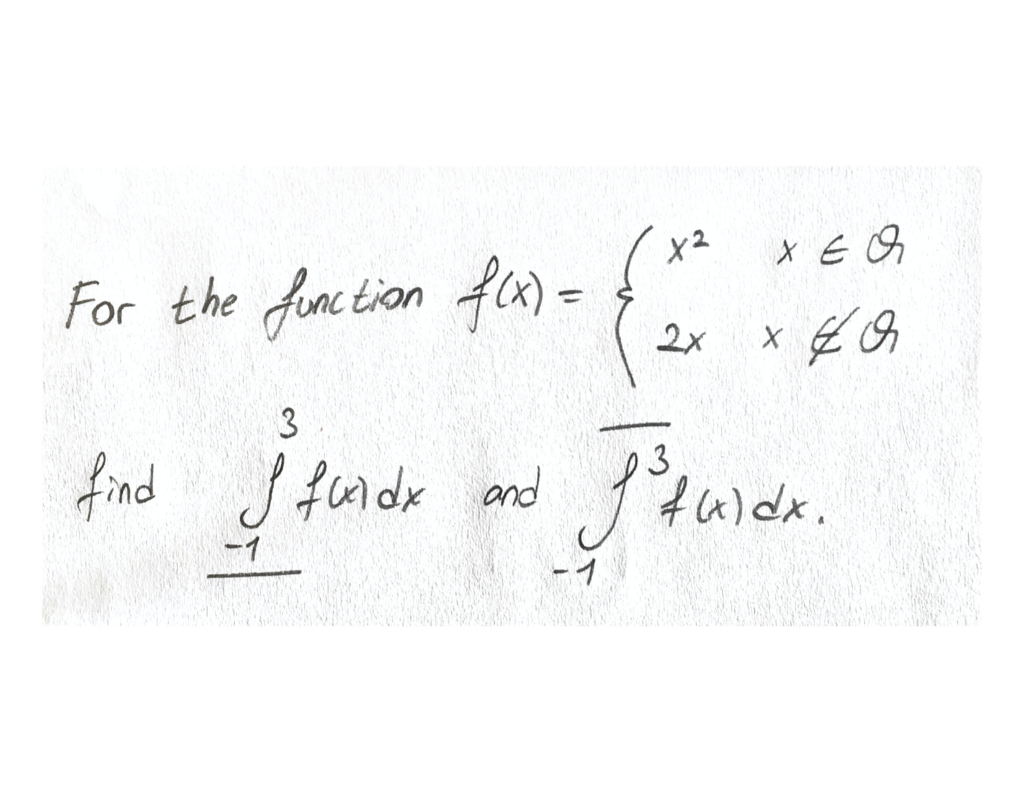 For the function f(x) = { x² x ∈ Q
2x x ∉ Q
find ∫₋₁³ f(x) dx and ∫₋₁³ f(x) dx.